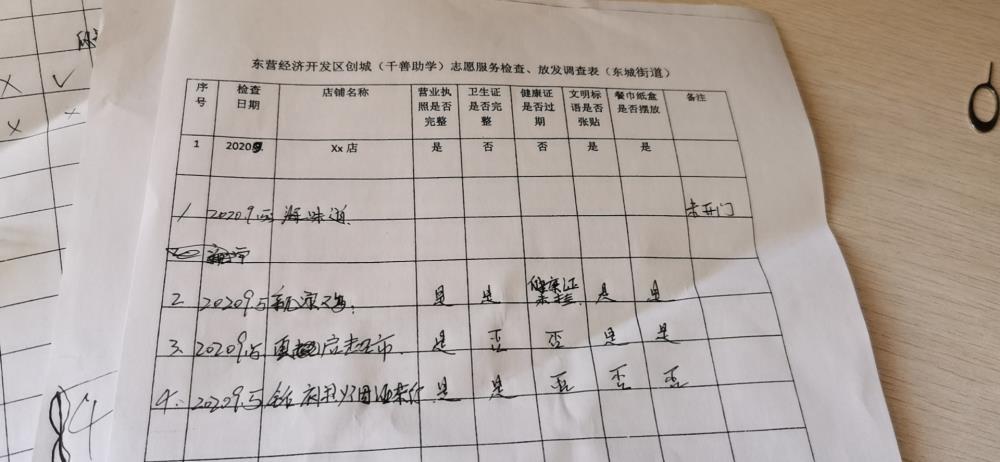 东营经济开发区创城（千善助学）志愿服务检查、放发调查表（东城街道）
序号 检查日期 店铺名称 营业执照是否完整 卫生证是否完整 健康证是否过期 文明标语是否张贴 餐巾纸盒是否摆放 备注
1 20209. Xx 店 是 否 否 是 是
1 20209.5 海味道 未开门
2 20209.5 是 是 健康证 是 是
3 20209.5 超市 是 否 否 是 是
4 20209.5 是 是 否 否 否
X V
X
84